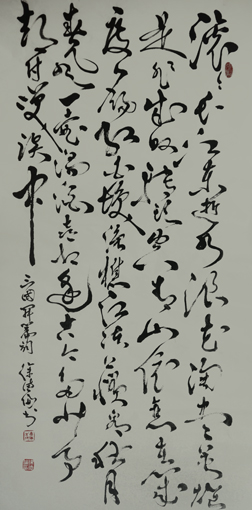 滚滚长江东逝水浪花淘尽英雄
是非成败转头空青山依旧在几
度夕阳红白发渔樵江渚惯看秋月
春风一壶浊酒喜相逢古今多少事
都付笑谈中
三国开篇词